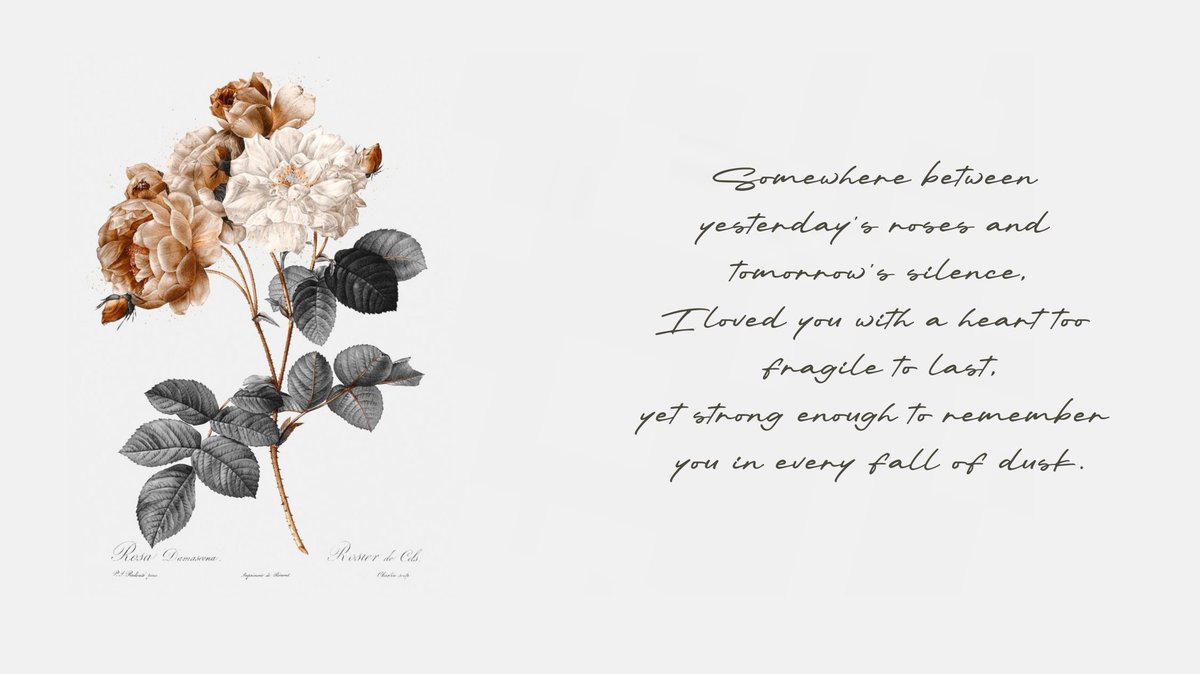 Somewhere between
yesterday's roses and
tomorrow's silence,
I loved you with a heart too
fragile to last,
yet strong enough to remember
you in every fall of dusk.
Rosa Damascena.
Rosier de Cels.
P. J. Redouté pinx.
Imprimerie de Rémond
sculp.